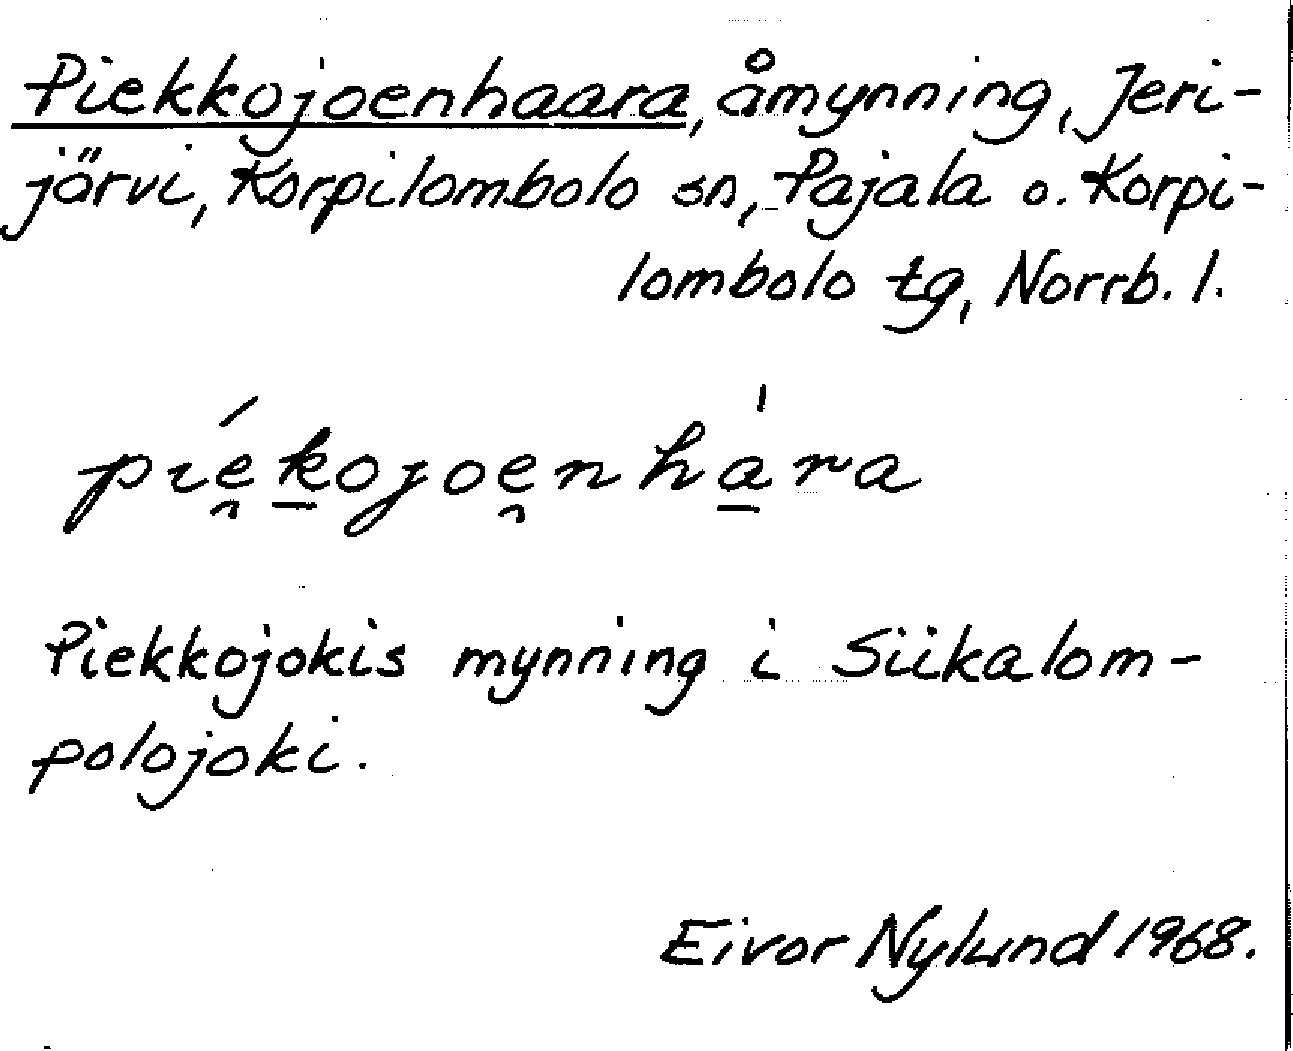 Piekkojoenhaara, åmynning, Jeri-
järvi, Korpilombolo sn, Pajala o. Korpi-
lombolo tg, Norrb. l.
pıé̯k̲ojoe̯nhà̲ra
Piekkojokis mynning i Siikalom-
polojoki.
Eivor Nylund 1968.